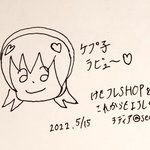 ケプ子
ラビュ〜♡
けもフレSHOPを
これからもよろしく
2022.5/15